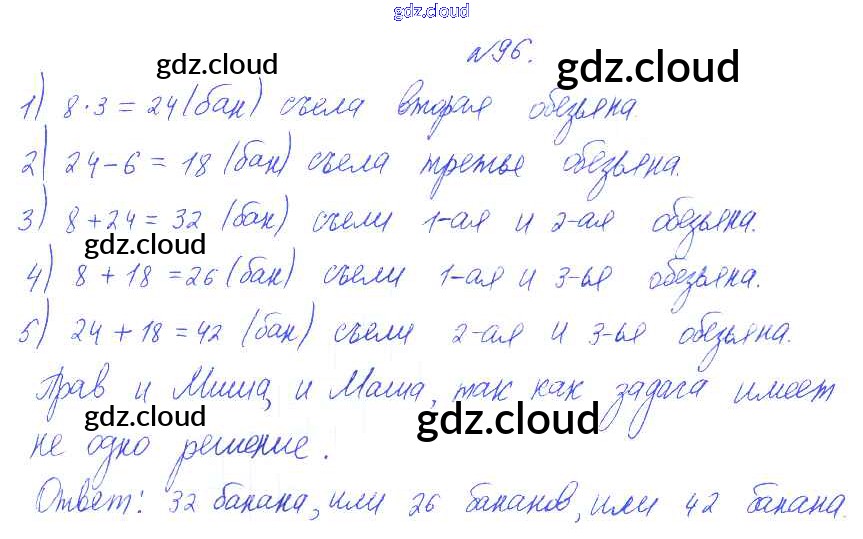 gdz.cloud
№96.
gdz.cloud gdz.cloud
1) 8·3=24 (бан) съела вторая обезьяна.
2) 24-6=18 (бан) съела третье обезьяна.
3) 8+24=32 (бан) съели 1-ая и 2-ая обезьяна.
gdz.cloud
4) 8+18=26 (бан) съели 1-ая и 3-ья обезьяна.
5) 24+18=42 (бан) съели 2-ая и 3-ья обезьяна.
Прав и Миша, и Маша, так как задача имеет
gdz.cloud gdz.cloud
не одно решение.
Ответ: 32 банана, или 26 бананов, или 42 банана.